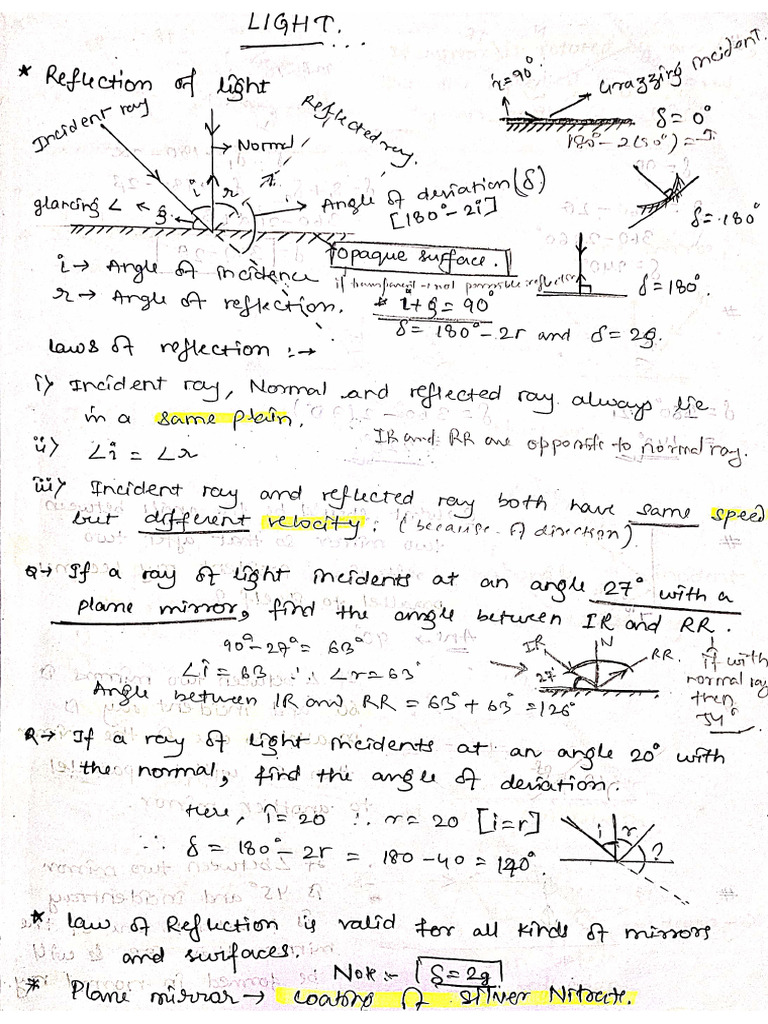 LIGHT...
* Reflection of light
Incident ray
Normal
Reflected ray.
i r
glancing ∠ g
Angle of deviation (δ)
[180° - 2i]
r = 90°
Grazzing incident.
δ = 0°
δ = 180°
δ = 180°.
opaque surface.
i → Angle of incidence
r → Angle of reflection.
* i + g = 90°
δ = 180° - 2r and δ = 2g.
laws of reflection :→
i) Incident ray, Normal and reflected ray always lie
in a same plain.
IR and RR are opposite to normal ray.
ii) ∠i = ∠r
iii) Incident ray and reflected ray both have same speed
but different velocity. (because of direction)
Q→ If a ray of light incidents at an angle 27° with a
plane mirror, find the angle between IR and RR.
90° - 27° = 63°
∠i = 63 ∴ ∠r = 63°
Angle between IR and RR = 63° + 63° = 126°
IR N RR
27°
if with
normal ray
then
54°
Q→ If a ray of light incidents at an angle 20° with
the normal, find the angle of deviation.
Here, i = 20 ∴ r = 20 [i=r]
∴ δ = 180° - 2r = 180 - 40 = 140°.
i r ?
* Law of Reflection is valid for all kinds of mirrors
and surfaces.
Note:- δ = 2g
* Plane mirror → coating of silver Nitrate.